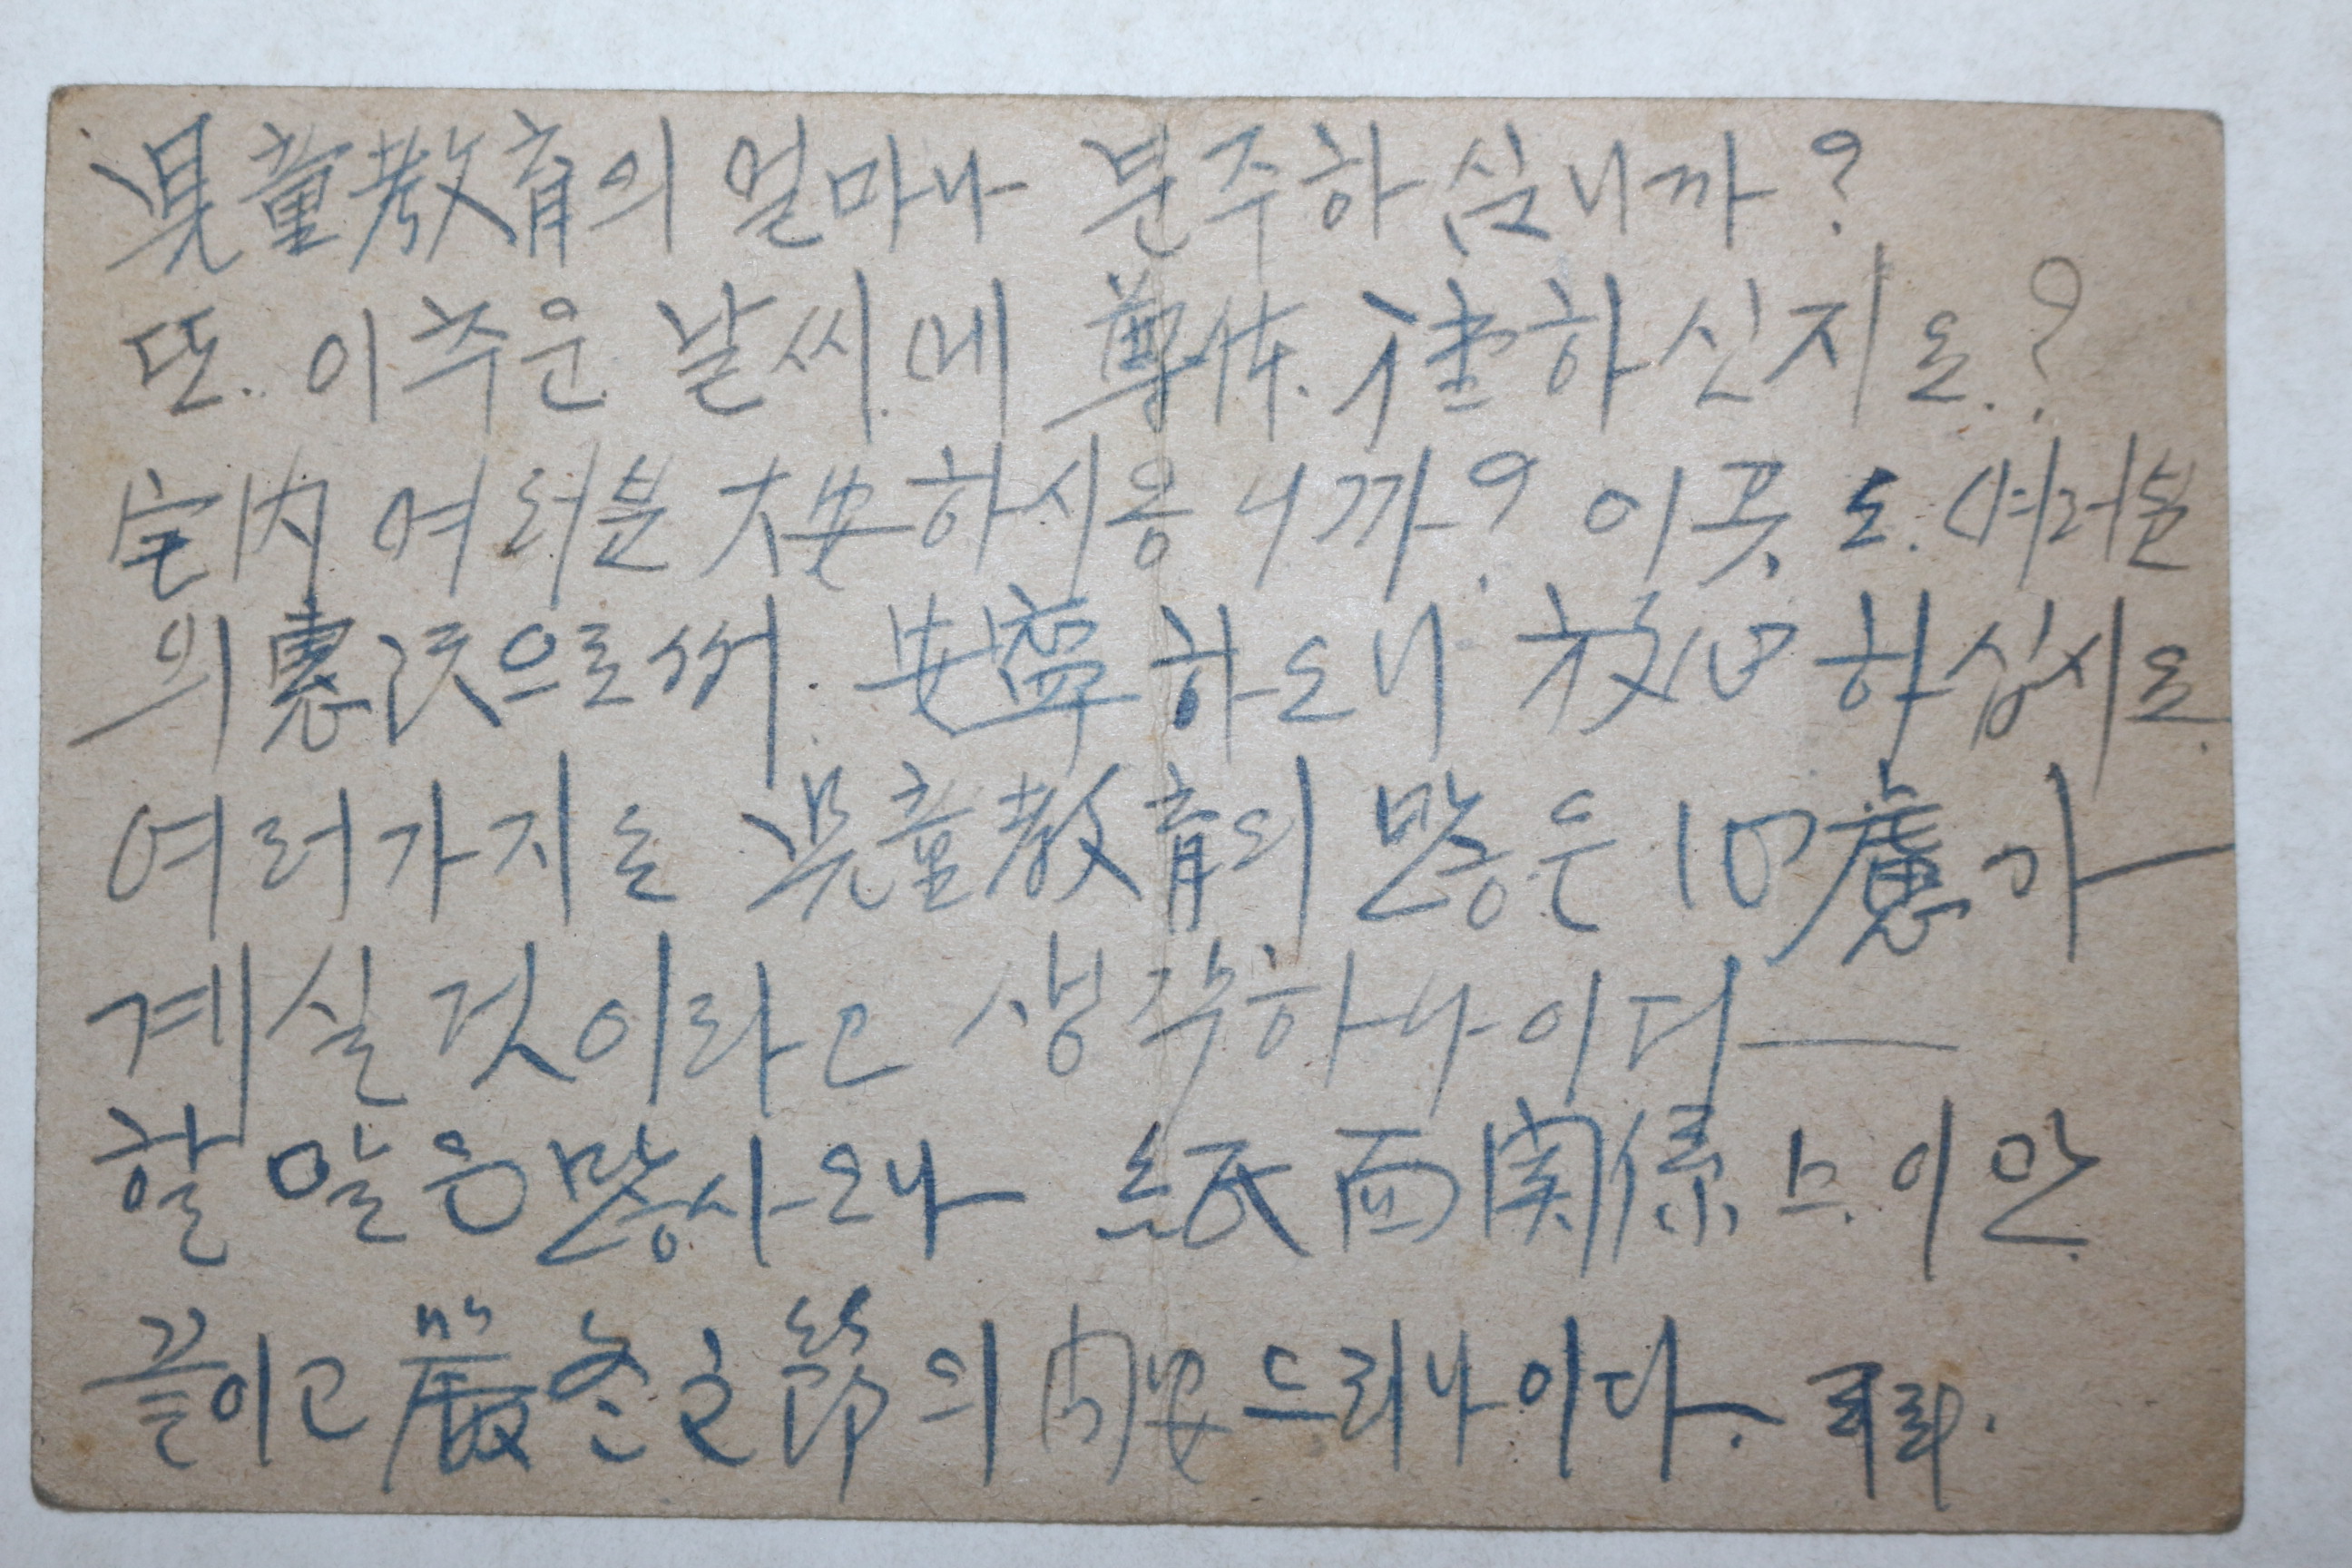 児童教育의 얼마나 분주하심니까?
또. 이 추운 날씨에 尊体. 健하신지요.?
宅内 여러분 大安하시옵니까? 이곳도. 여러분
의 惠沢으로써. 安寧하오니 放心하십시요.
여러가지로 児童教育의 많은 心慮가
계실 것이라고 생각하나이다—
할 말은 많사오나 紙面関係 이만
끝이고 嚴冬之節의 问安드리나이다.